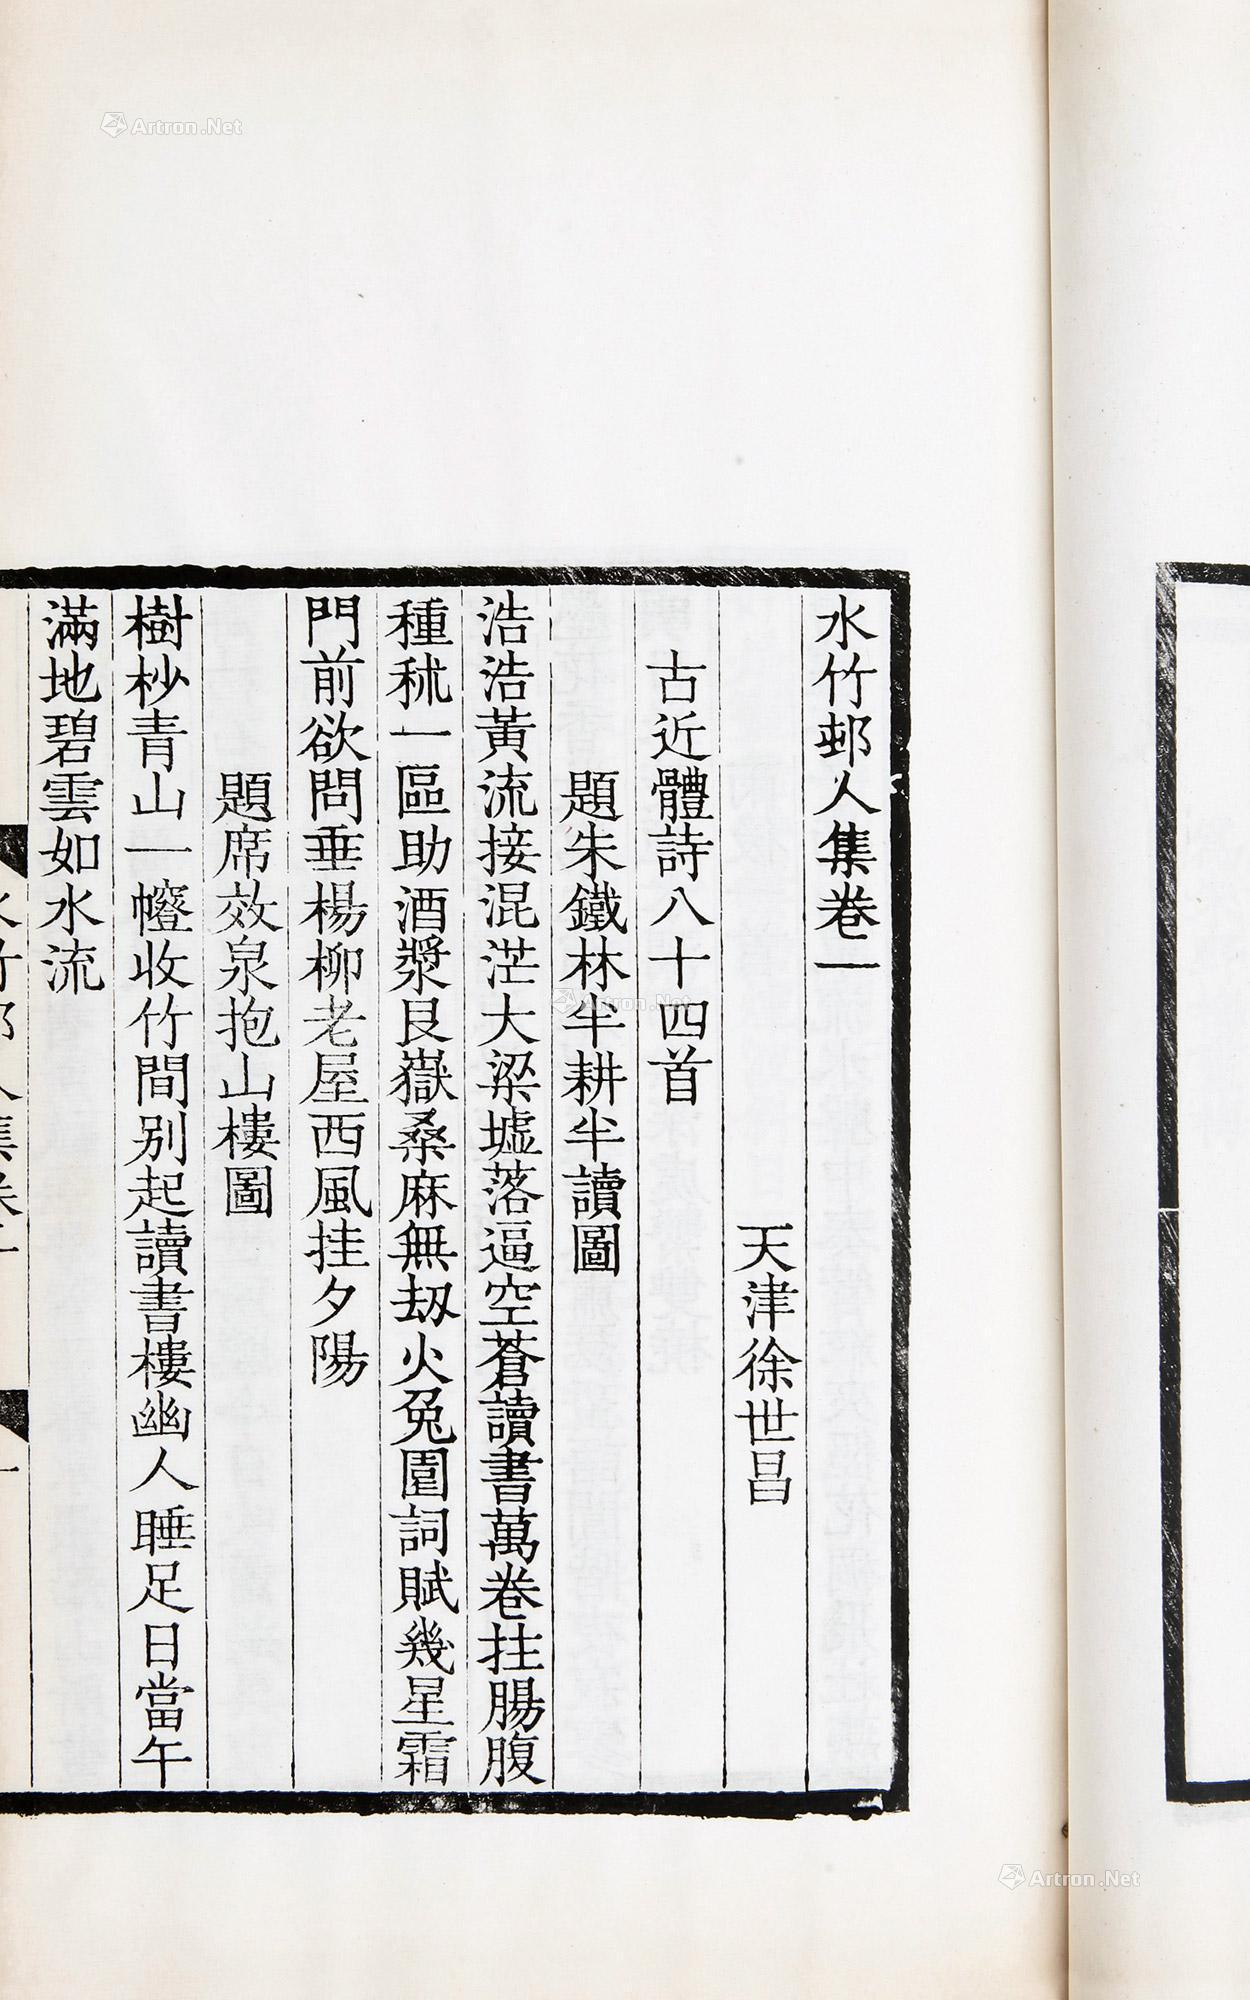 水竹邨人集卷一
天津徐世昌
古近體詩八十四首
題朱鐵林半耕半讀圖
浩浩黃流接混茫大梁墟落逼空蒼讀書萬卷拄腸腹
種秫一區助酒漿艮嶽桑麻無刼火兔園詞賦幾星霜
門前欲問垂楊柳老屋西風挂夕陽
題席效泉抱山樓圖
樹杪青山一㡧收竹間別起讀書樓幽人睡足日當午
滿地碧雲如水流
水竹邨人集卷一
一
Artron.Net
Artron.Net
Artron.Net